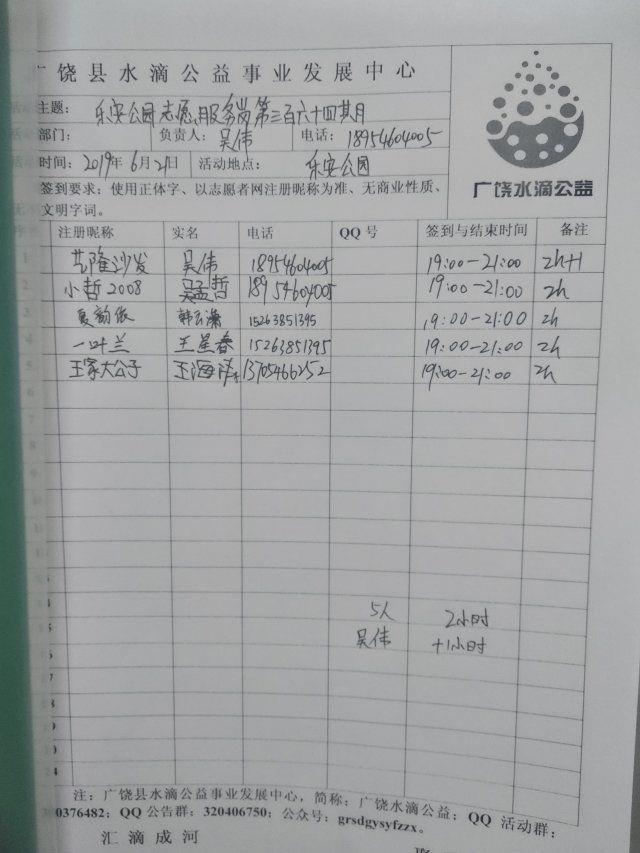 广饶县水滴公益事业发展中心
主题：乐安公园志愿服务岗第三百六十四期
部门： 负责人：吴伟 电话：18954604005
时间：2019年6月21日 活动地点：乐安公园
广饶水滴公益
签到要求：使用正体字、以志愿者网注册昵称为准、无商业性质、
文明字词。
注册昵称 实名 电话 QQ号 签到与结束时间 备注
艺隆沙发 吴伟 18954604005 19:00-21:00 2h+1
小哲2008 吴孟哲 18954604005 19:00-21:00 2h
夏韵依 韩云潇 15263851395 19:00-21:00 2h
一叶兰 王星春 15263851395 19:00-21:00 2h
王家大公子 王海 13705466252 19:00-21:00 2h
5人 2小时
吴伟 +1小时
注：广饶县水滴公益事业发展中心，简称：广饶水滴公益；QQ 活动群：
0376482；QQ公告群：320406750；公众号：grsdgysyfzzx。
汇滴成河